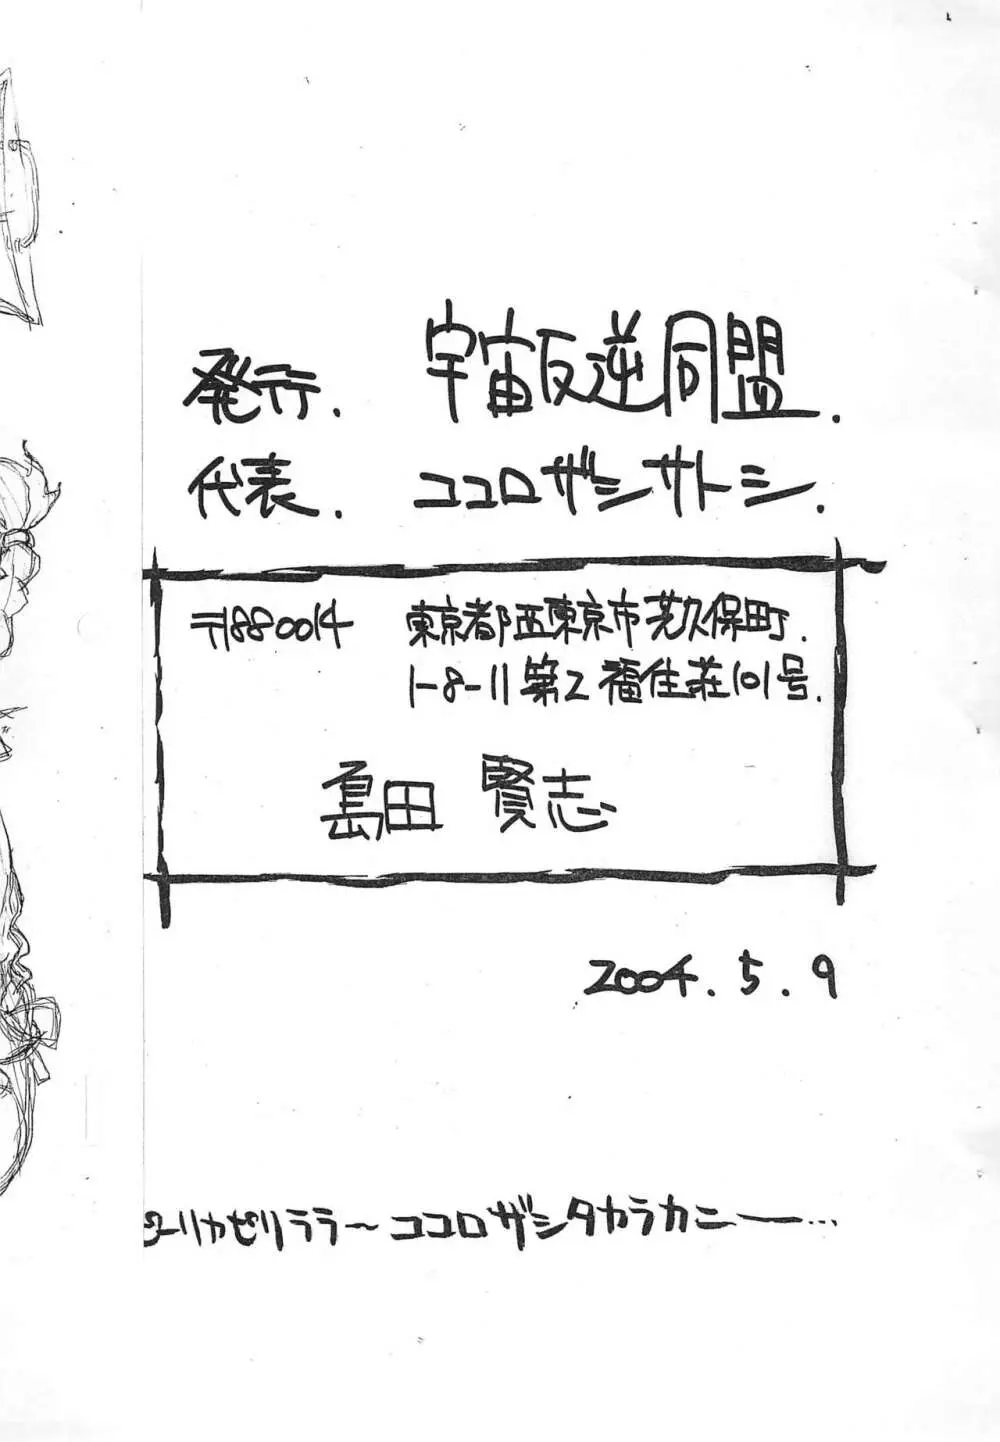 発行. 宇宙反逆同盟.
代表. ココロザシサトシ.
〒1880014 東京都西東京市芝久保町.
1-8-11 第2福住荘101号.
島田 賢志
2004.5.9
リカピリララ〜ココロザシタカラカニー…